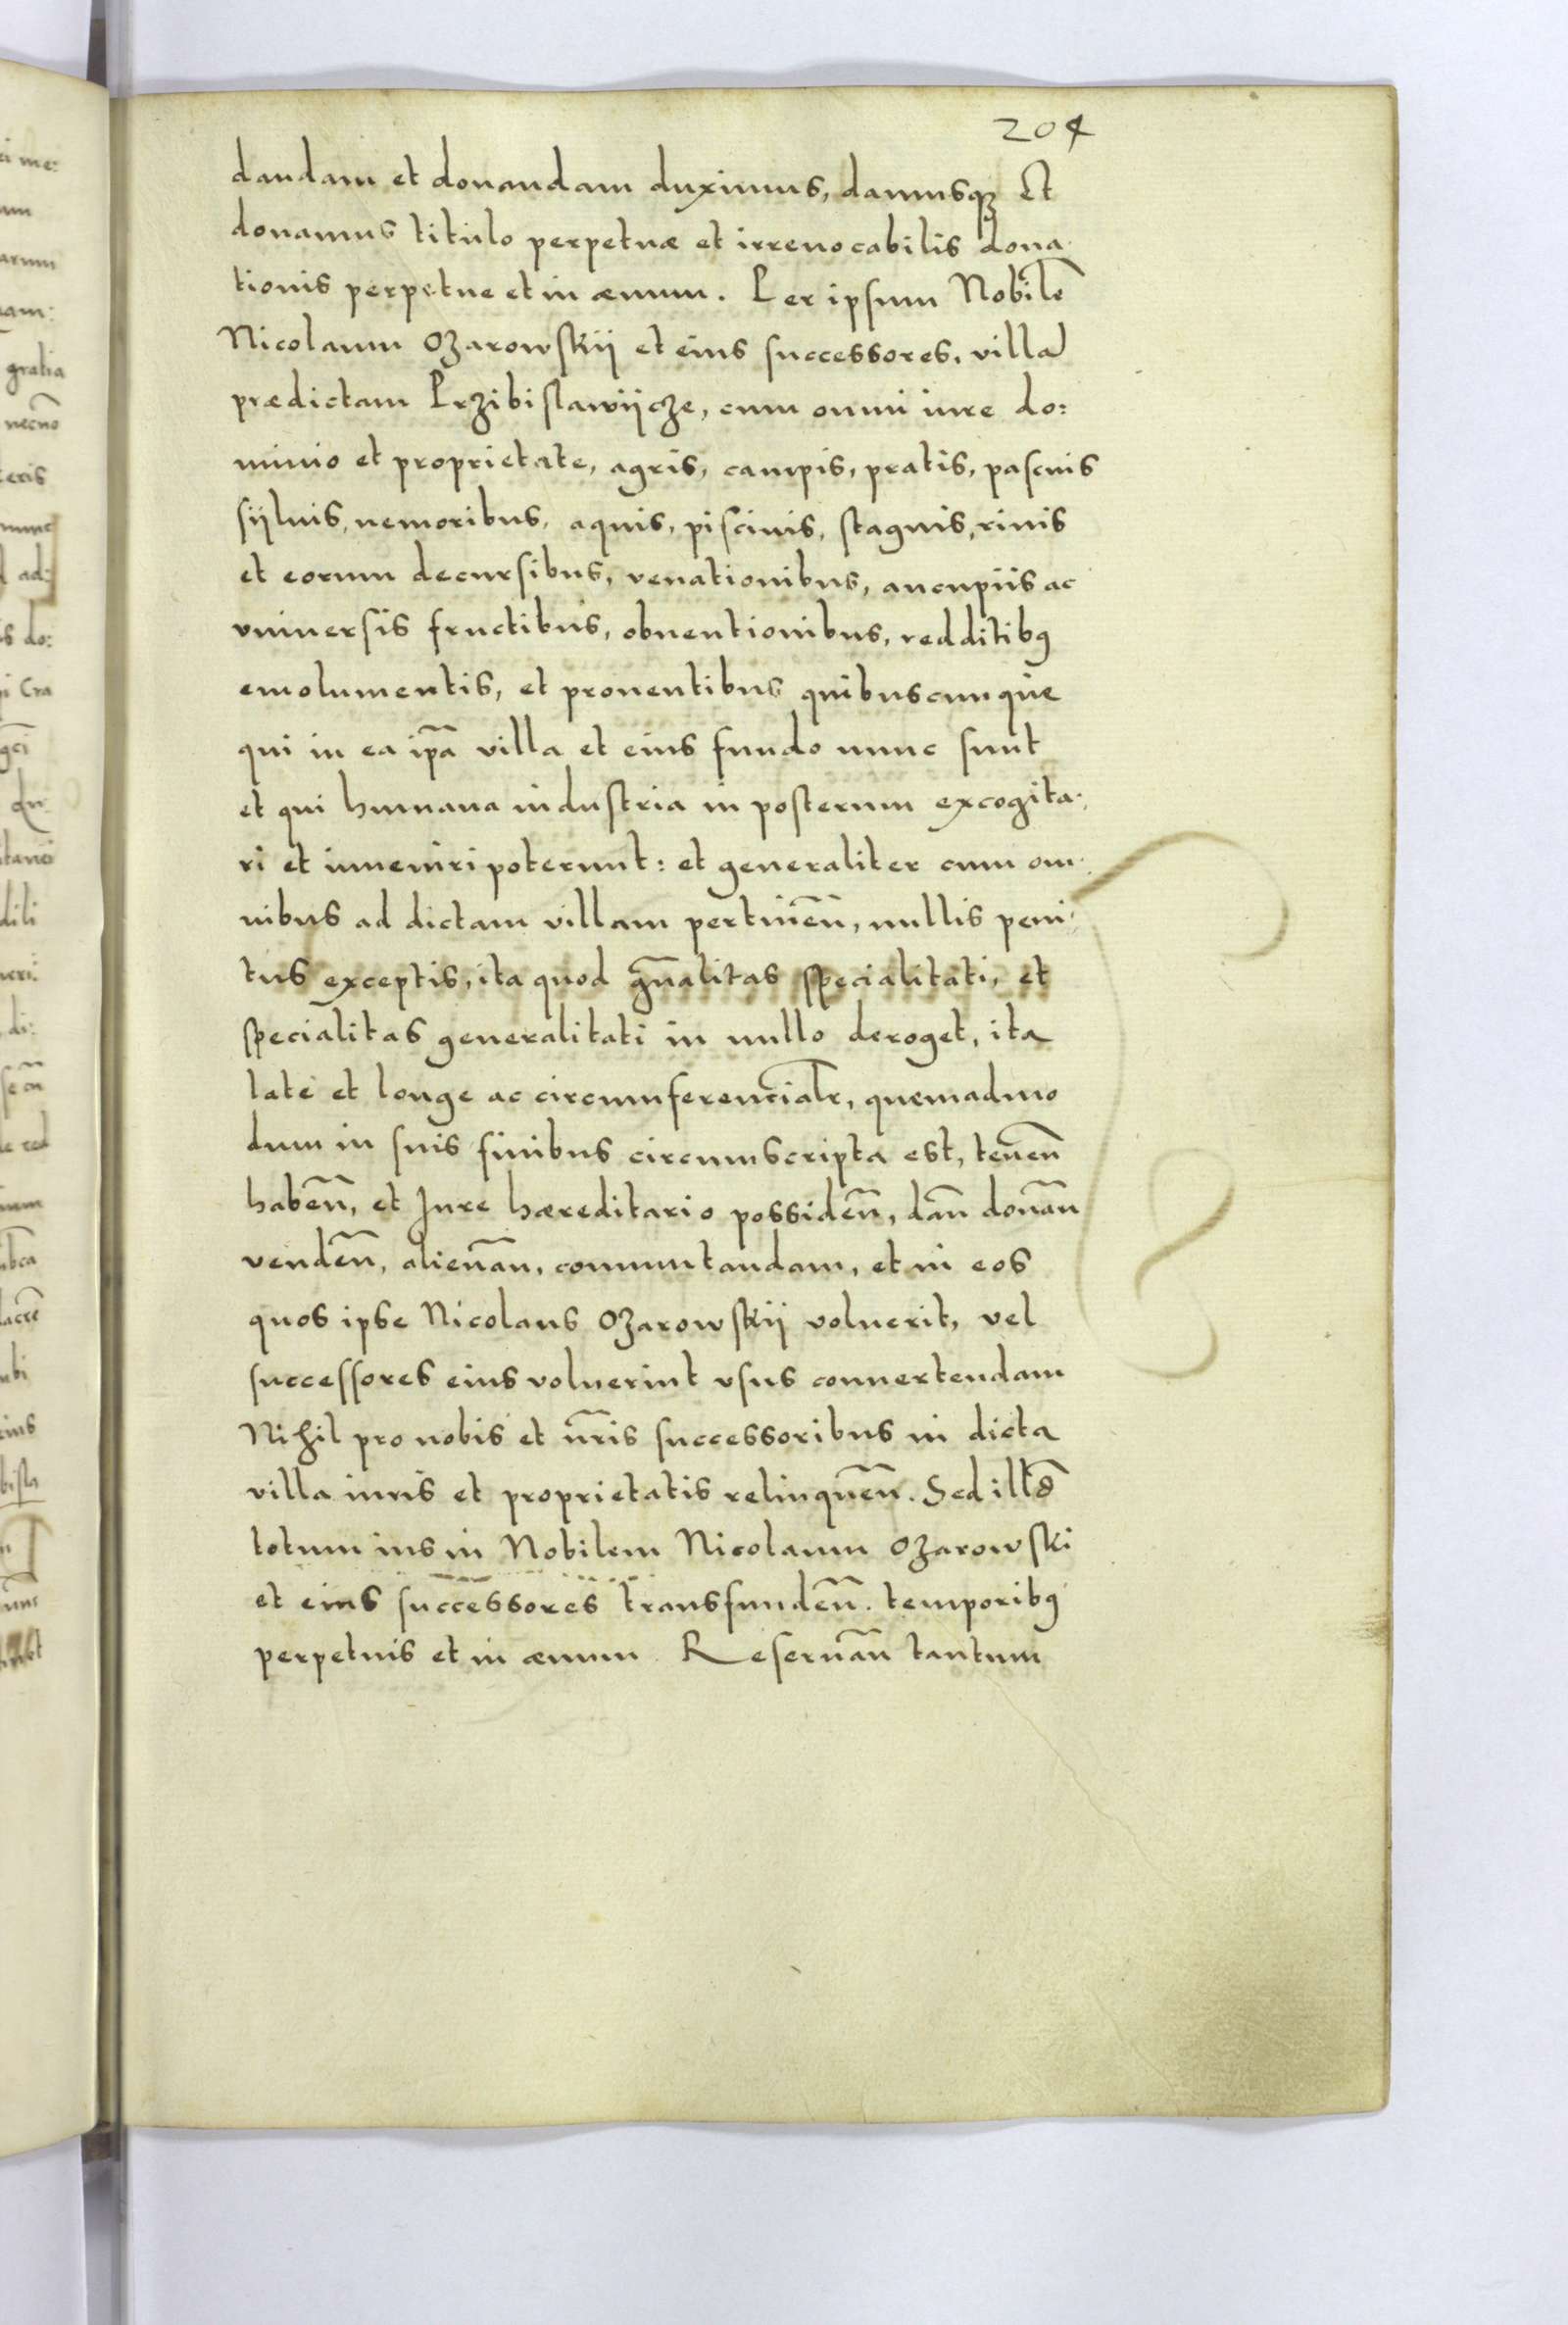 204
dandam et donandam duximus, damusqꝫ Et
donamus titulo perpetuæ et irreuocabilis dona-
tionis perpetue et in æuum. Per ipsum Nobilē
Nicolaum Ozarowskij et eius successores, villā
prædictam Przibislawijcze, cum omni iure do:
minio et proprietate, agris, campis, pratis, pascuis
sijluis, nemoribus, aquis, piscinis, stagnis, riuis
et eorum decursibus, venationibus, aucupiis ac
vniuersis fructibus, obuentionibus, redditibꝰ
emolumentis, et prouentibus quibuscunque
qui in ea ip̄a villa et eius fundo nunc sunt
et qui humana industria in posterum excogita-
ri et inueniri poterunt: et generaliter cum om-
nibus ad dictam villam pertineñ, nullis peni-
tus exceptis, ita quod gñalitas specialitati, et
specialitas generalitati in nullo deroget, ita
late et longe ac circumferencialr̄, quemadmo
dum in suis finibus circumscripta est, teneñ
habeñ, et Iure hæreditario possideñ, dañ donañ
vendeñ, alienañ, commutandam, et in eos
quos ipse Nicolaus Ozarowskij voluerit, vel
successores eius voluerint vsus conuertendam
Nihil pro nobis et ñris successoribus in dicta
villa iuris et proprietatis relinqueñ. Sed illud
totum ius in Nobilem Nicolaum Ozarowski
et eius successores transfundeñ. temporibꝰ
perpetuis et in æuum. Reseruañ tantum